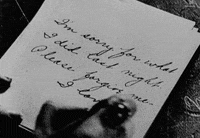 I'm sorry for what
I did last night.
Please forgive me.
I